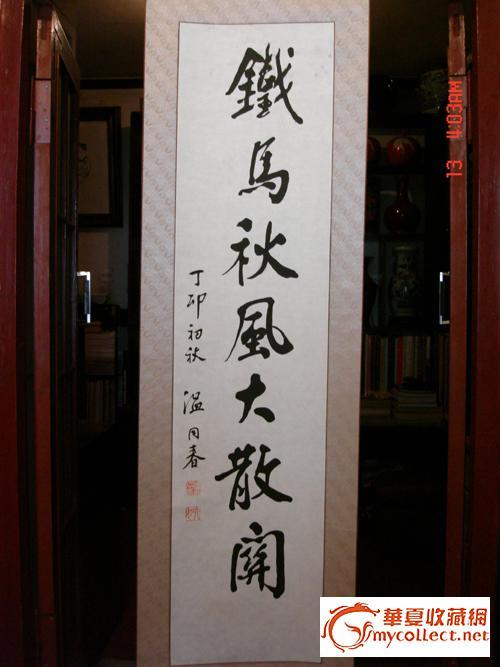 鐵馬秋風大散關
丁卯初秋 温同春
13 4:03AM
華夏收藏網
mycollect.net